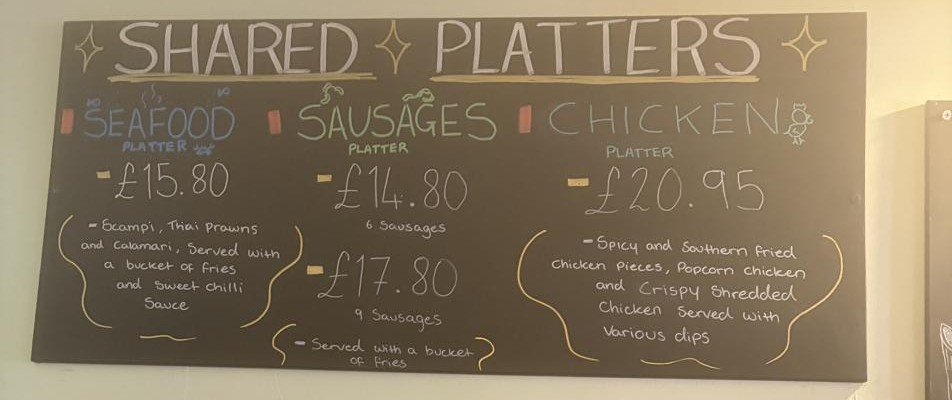 SHARED PLATTERS
SEAFOOD
PLATTER
- £15.80
- Scampi, Thai Prawns
and Calamari, Served with
a bucket of fries
and Sweet Chilli
Sauce
SAUSAGES
PLATTER
- £14.80
6 Sausages
- £17.80
9 Sausages
- Served with a bucket
of fries
CHICKEN
PLATTER
- £20.95
- Spicy and Southern fried
Chicken pieces, Popcorn chicken
and Crispy Shredded
Chicken Served with
Various dips